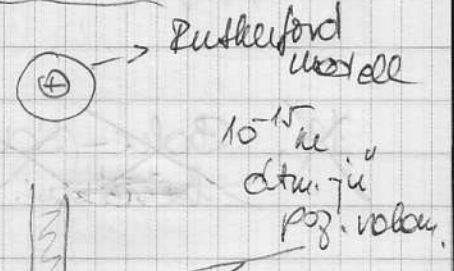 Rutherford
modell
10⁻¹⁵ m
átm.-jű
poz. valam.
+